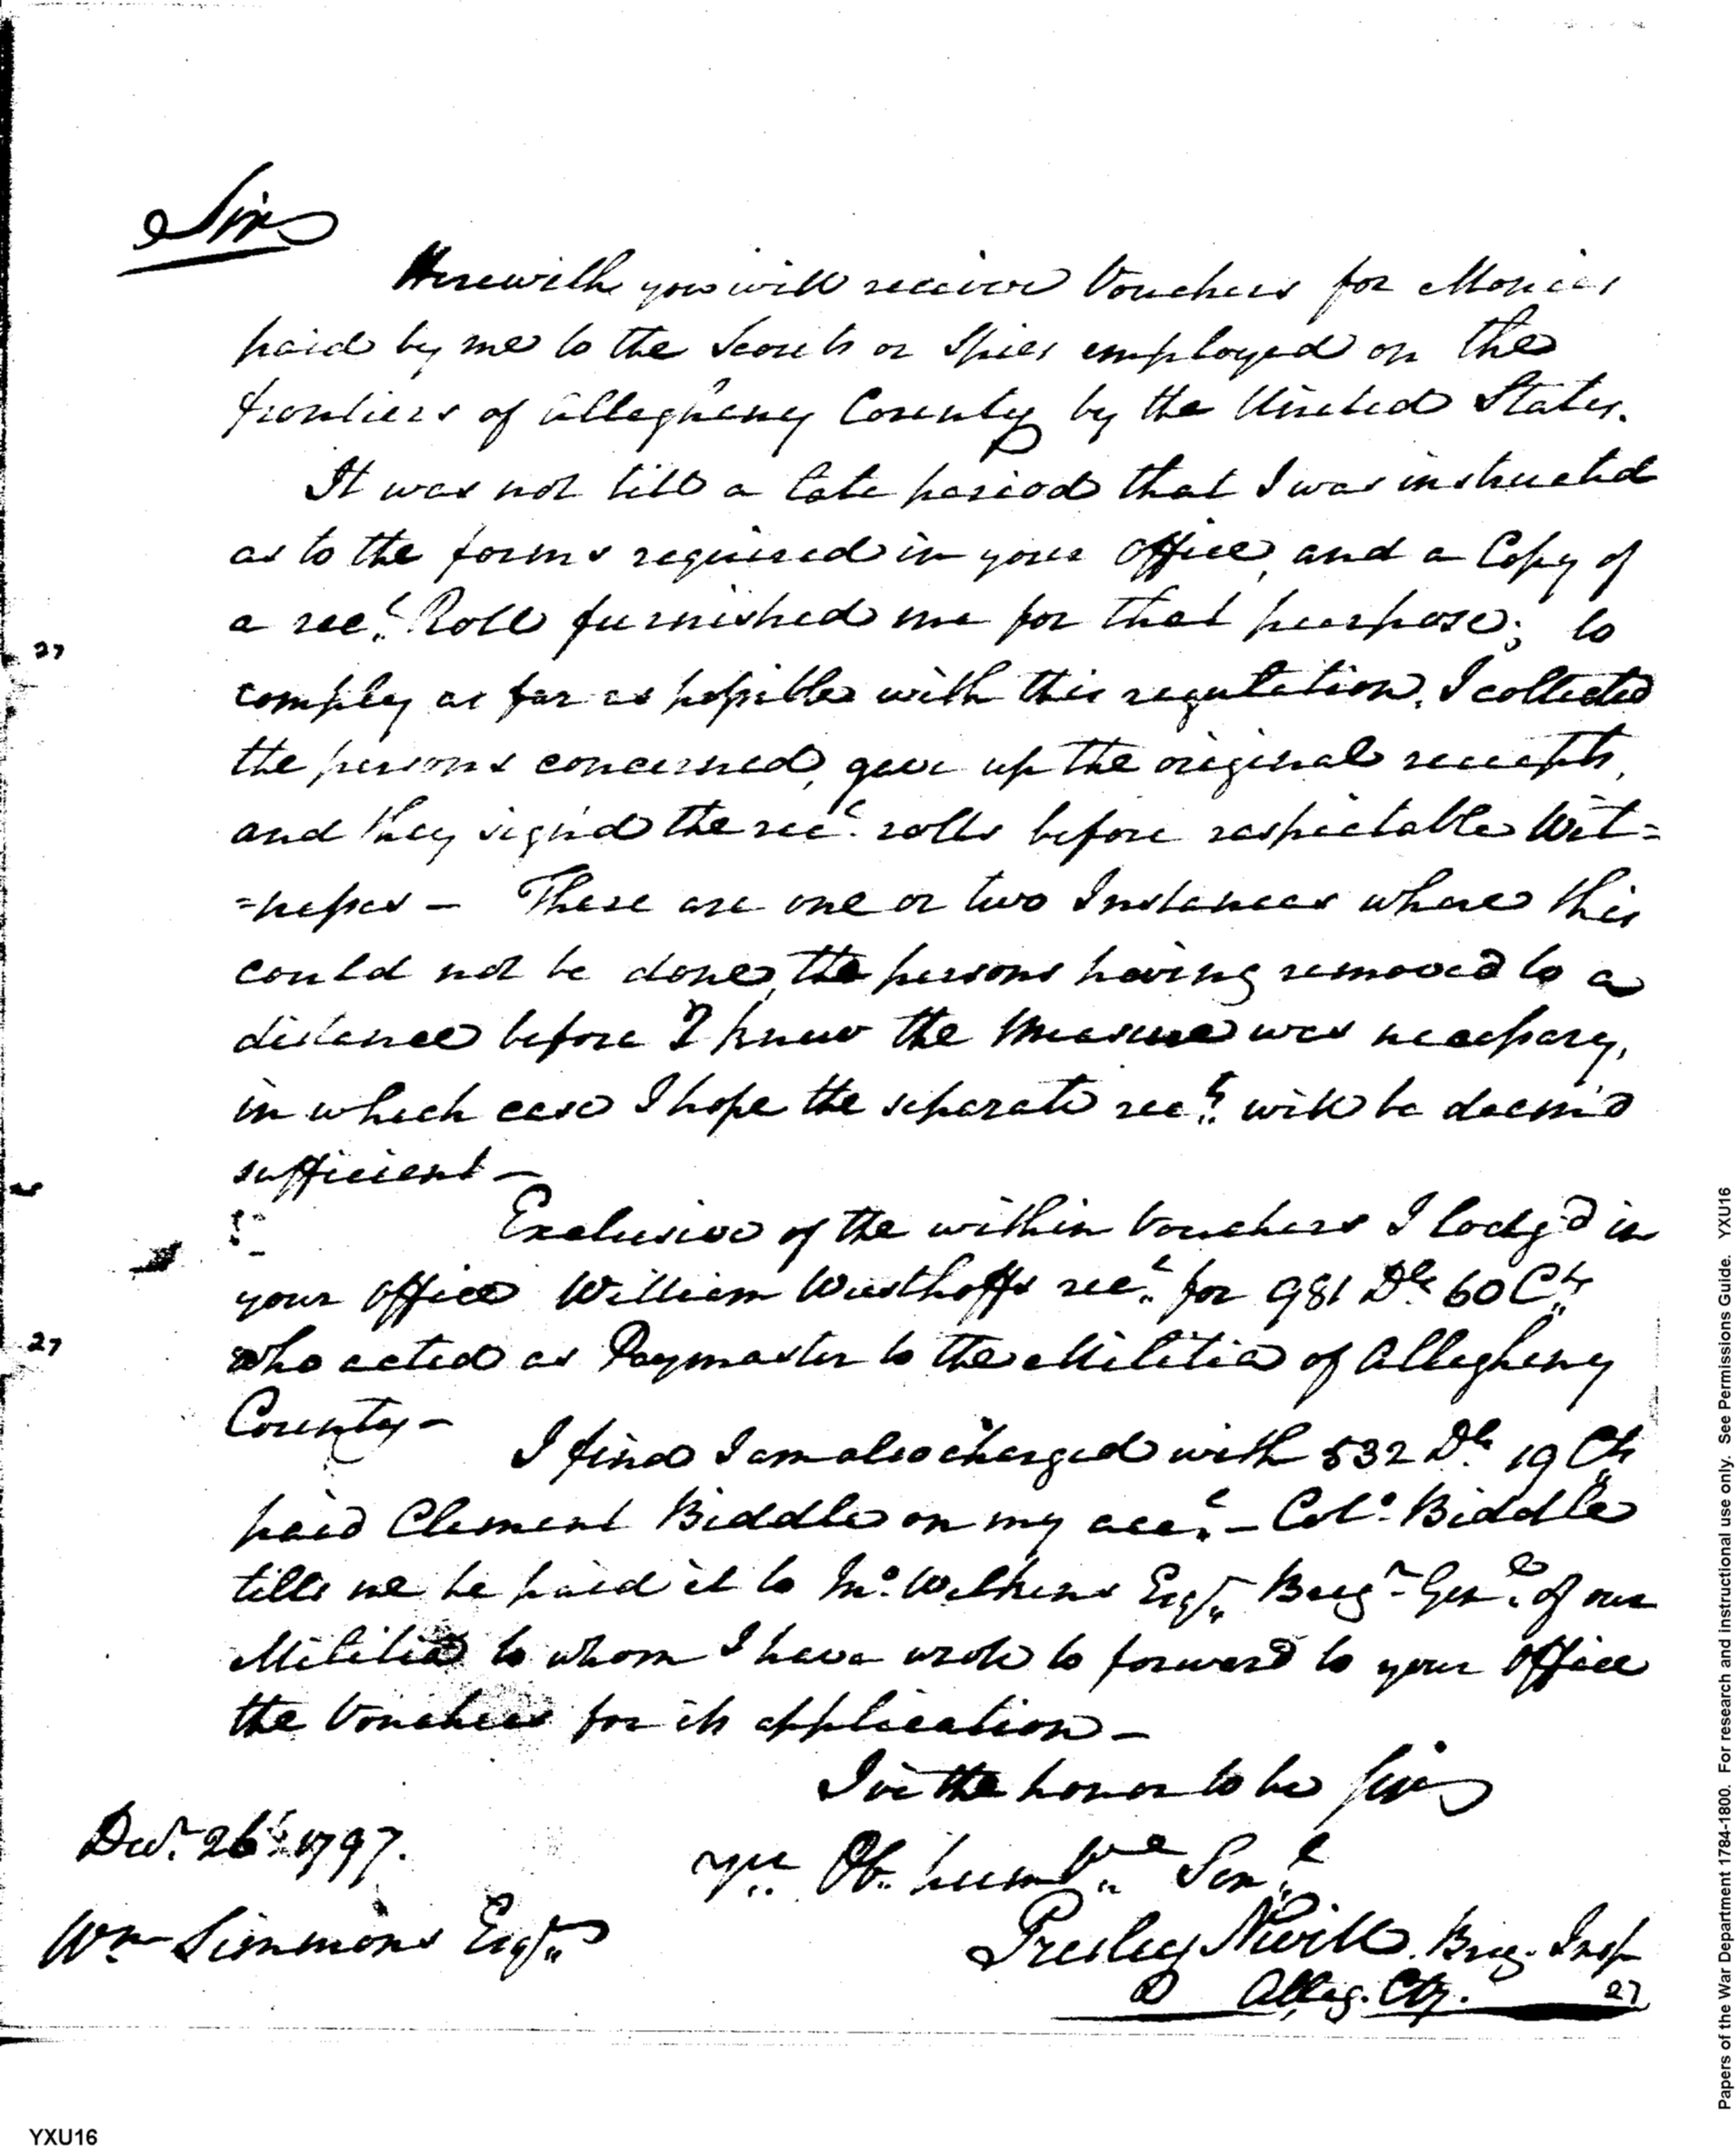 Sir
Herewith you will receive Vouchers for Monies
paid by me to the Scouts or Spies employed on the
frontiers of Allegheny County by the United States.
It was not till a late period that I was instructed
as to the forms required in your Office, and a Copy of
a recᵗ Roll furnished me for that purpose; to
comply as far as possible with this regulation, I collected
the persons concerned, gave up the original receipts,
and they sign'd the recᵗ rolls before respectable Wit=
=nesses - There are one or two Instances where this
could not be done, the persons having removed to a
distance before I knew the Measure was necessary,
in which case I hope the separate recᵗˢ will be deem'd
sufficient -
Exclusive of the within Vouchers I lodg'd in
your Office William Wusthoffs recᵗ for 981 Dˡˢ 60 Cᵗˢ
who acted as Paymaster to the Militia of Allegheny
County -
I find I am also charged with 532 Dˡˢ 19 Cᵗˢ
paid Clement Biddle on my accᵗ - Colº Biddle
tells me he paid it to Jnº Wilkins Esqʳ Brigʳ Genˡ of our
Militia to whom I have wrote to forward to your Office
the Vouchers for its application -
I've the honor to be Sir
Yʳ Ob. humbˡᵉ Serᵗ
Presley Nevill. Brig. Insp
Alleg. Cty.
Decʳ 26ᵗʰ 1797.
Wm Simmons Esqʳ
27
27
27
YXU16
Papers of the War Department 1784-1800. For research and instructional use only. See Permissions Guide. YXU16